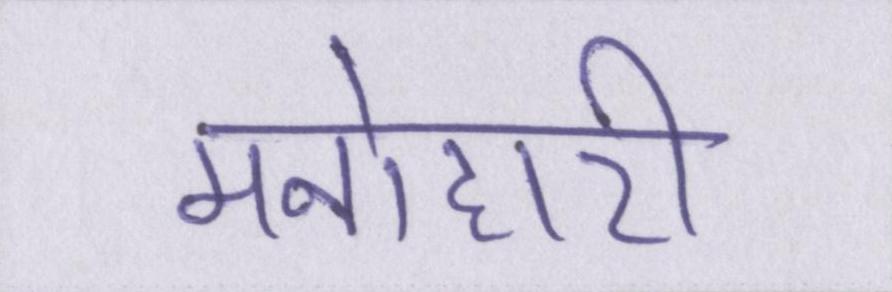 मनोहारी